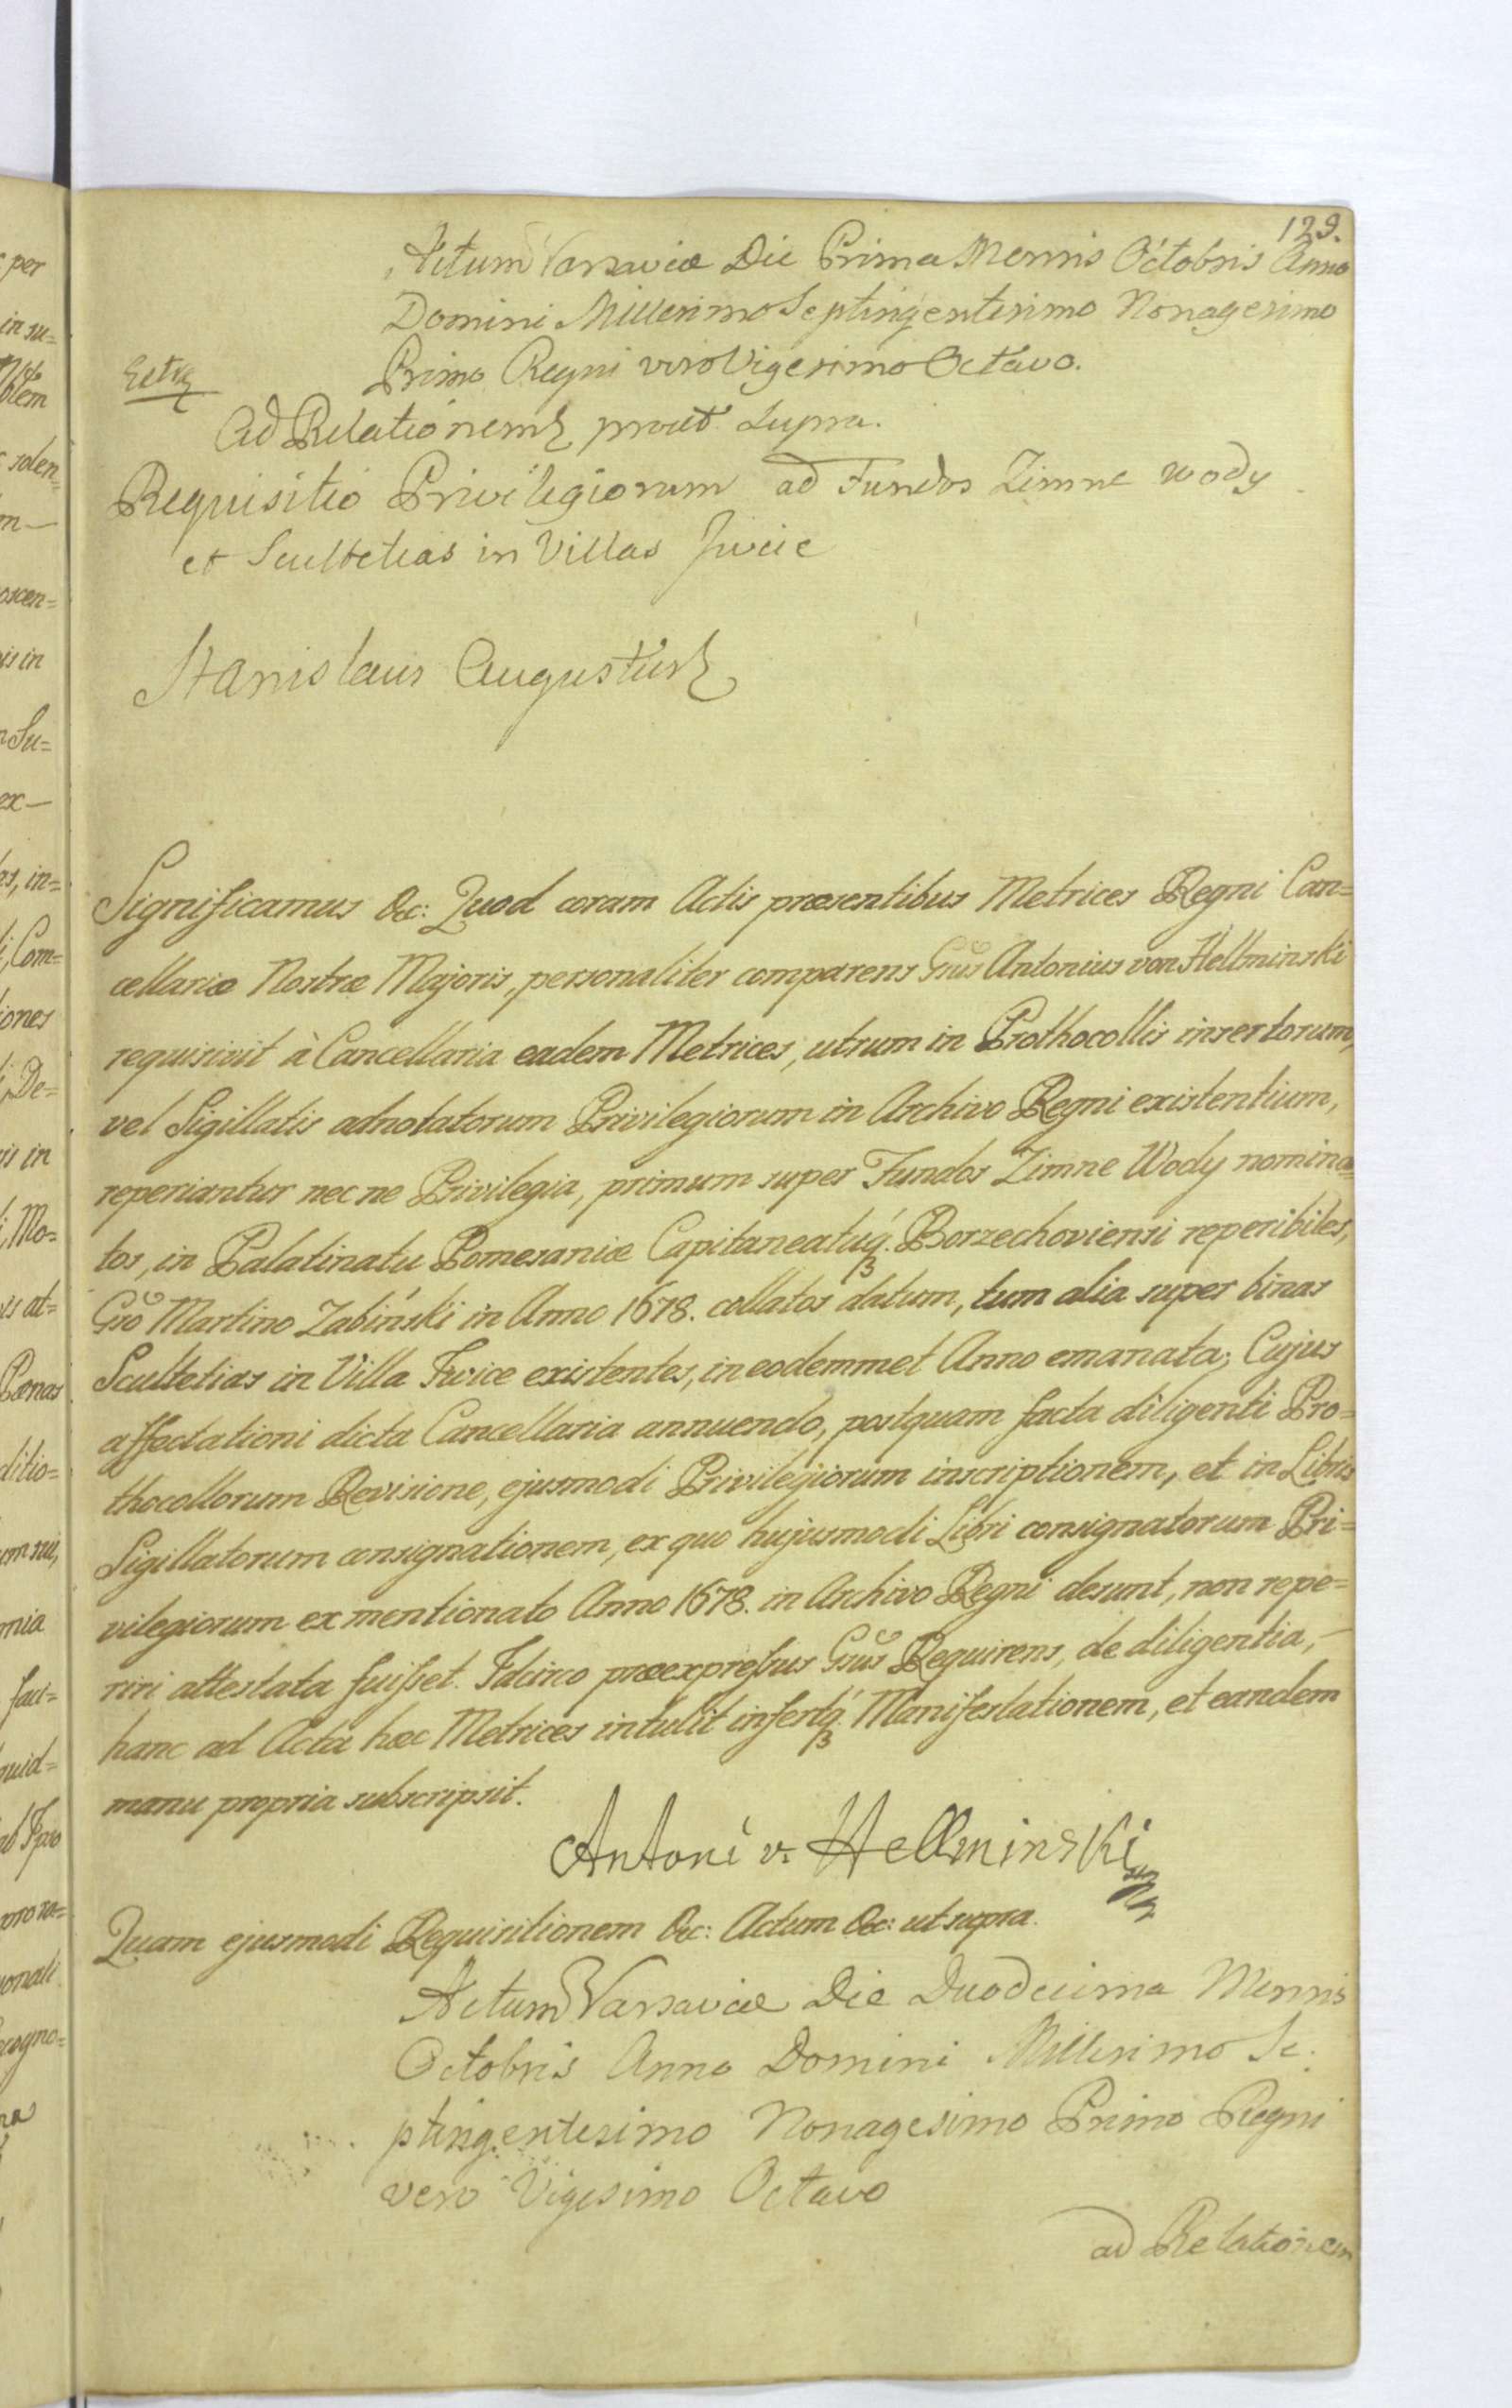 129.
Actum Varsaviæ Die Prima Mensis Octobris Anno
Domini Millesimo Septingentesimo Nonagesimo
Primo Regni vero Vigesimo Octavo.
Ad Relationem prout Supra.
Requisitio Privilegiorum ad Fundos Zimne wody
et Scultetias in Villas Jwice
Stanislaus Augustus
Significamus &c: Quod coram Actis præsentibus Metrices Regni Can=
cellariæ Nostræ Majoris, personaliter comparens Gnus Antonius von Hellminski
requisivit à Cancellaria eadem Metrices, utrum in Prothocollis insertorum,
vel Sigillatis adnotatorum Privilegiorum in Archivo Regni existentium,
reperiantur nec ne Privilegia, primum super Fundos Zimne Wody nomina=
tos, in Palatinatu Pomeraniæ Capitaneatuq. Borzechoviensi reperibiles,
Gno Martino Zabinski in Anno 1678. collatos datum, tum alia super binas
Scultetias in Villa Jwice existentes, in eodemmet Anno emanata; Cujus
affectationi dicta Cancellaria annuendo, postquam facta diligenti Pro=
thocollorum Revisione, ejusmodi Privilegiorum inscriptionem, et in Libris
Sigillatorum consignationem, ex quo hujusmodi Libri consignatorum Pri=
vilegiorum ex mentionato Anno 1678. in Archivo Regni desunt, non repe=
riri attestata fuisset. Idcirco præexpressus Gnus Requirens, de diligentia,
hanc ad Acta hæc Metrices intulit insertq. Manifestationem, et eandem
manu propria subscripsit.
Antoni v. Hellminski
Quam ejusmodi Requisitionem &c: Actum &c: ut supra.
Actum Varsaviæ Die Duodecima Mensis
Octobris Anno Domini Millesimo Se=
ptingentesimo Nonagesimo Primo Regni
vero Vigesimo Octavo
ad Relationem